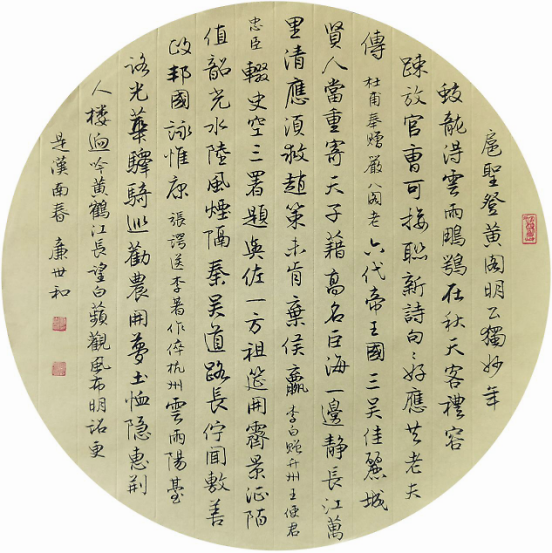 扈聖登黄阁明公獨妙年
蛟龍得雲雨鵰鶚在秋天客禮容
疎放官曹可接聯新詩句〻好應共老夫
傳 杜甫奉贈嚴八阁老 六代帝王國三吴佳麗城
賢人當重寄天子藉高名巨海一邊静長江萬
里清應須救趙策未肯棄侯嬴 李白赠升州王使君
忠臣 輟史空三署題輿佐一方祖筵開霽景征陌
值韶光水陸風煙隔秦吴道路長佇聞敷善
政邦國詠惟康 張諤送李著作倅杭州 雲雨陽臺
路光華驛騎巡勸農開夢土恤隐惠荆
人楼逈吟黄鶴江長望白蘋觀風布明詔更
是漢南春 廉世和